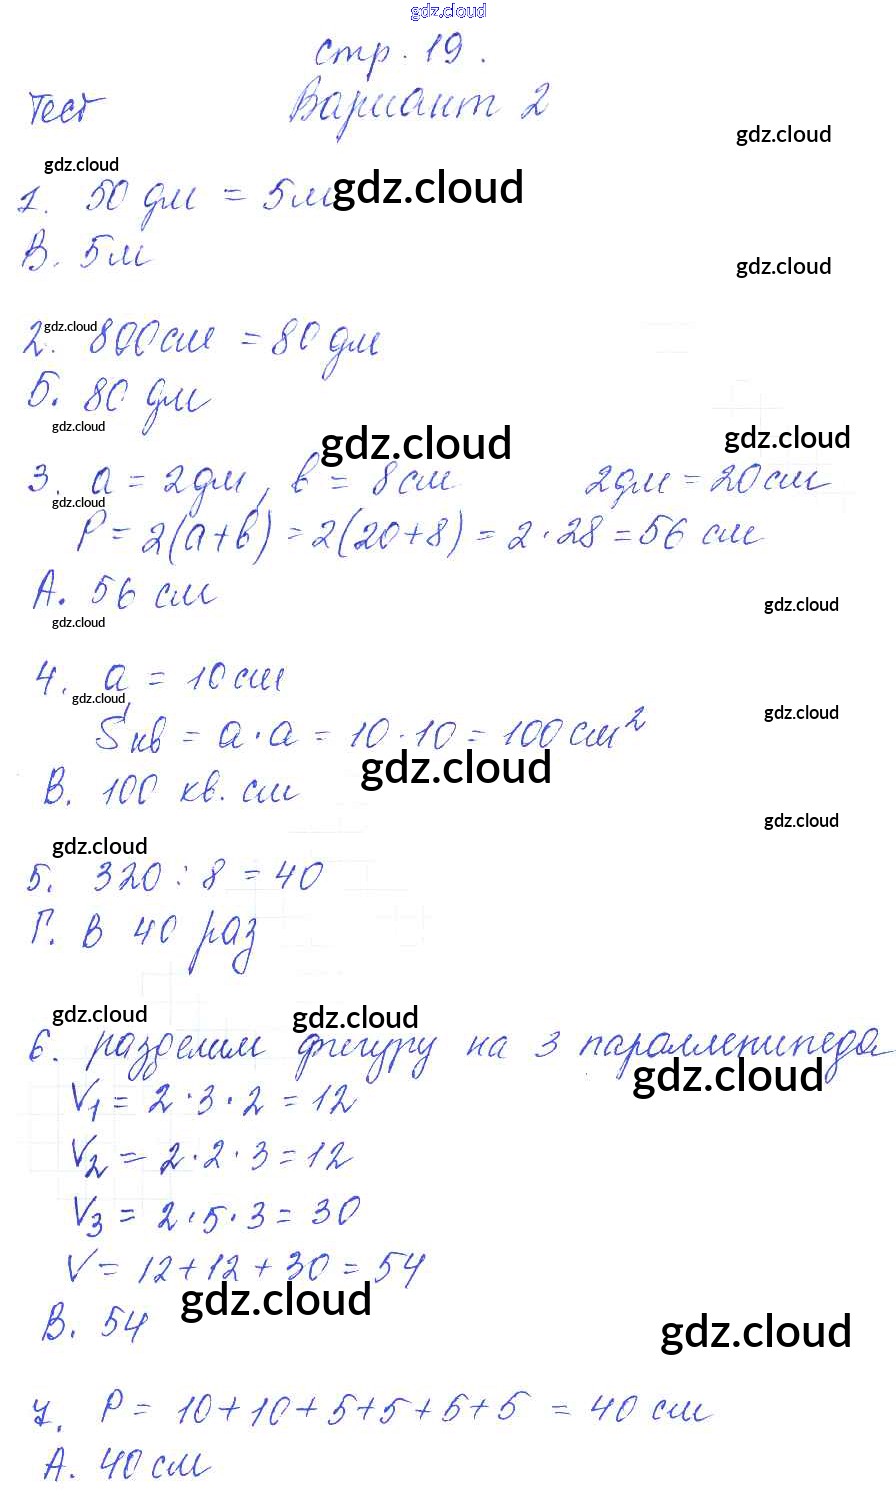 gdz.cloud
стр. 19.
Тест Вариант 2
gdz.cloud
gdz.cloud
1. 50 дм = 5м
gdz.cloud
В. 5м
gdz.cloud
2. 800см = 80 дм
gdz.cloud
Б. 80 дм
gdz.cloud
gdz.cloud
gdz.cloud
3. а = 2дм, в = 8см 2дм = 20см
gdz.cloud
Р = 2(а+в) = 2(20+8) = 2·28 = 56 см
А. 56 см
gdz.cloud
gdz.cloud
4. а = 10см
gdz.cloud
gdz.cloud
Sкв = а·а = 10·10 = 100см²
gdz.cloud
В. 100 кв. см
gdz.cloud
gdz.cloud
5. 320 : 8 = 40
Г. в 40 раз
gdz.cloud
gdz.cloud
6. разделим фигуру на 3 параллепипеда
gdz.cloud
V₁ = 2·3·2 = 12
V₂ = 2·2·3 = 12
V₃ = 2·5·3 = 30
V = 12+12+30 = 54
gdz.cloud
В. 54
gdz.cloud
7. Р = 10+10+5+5+5+5 = 40 см
А. 40см